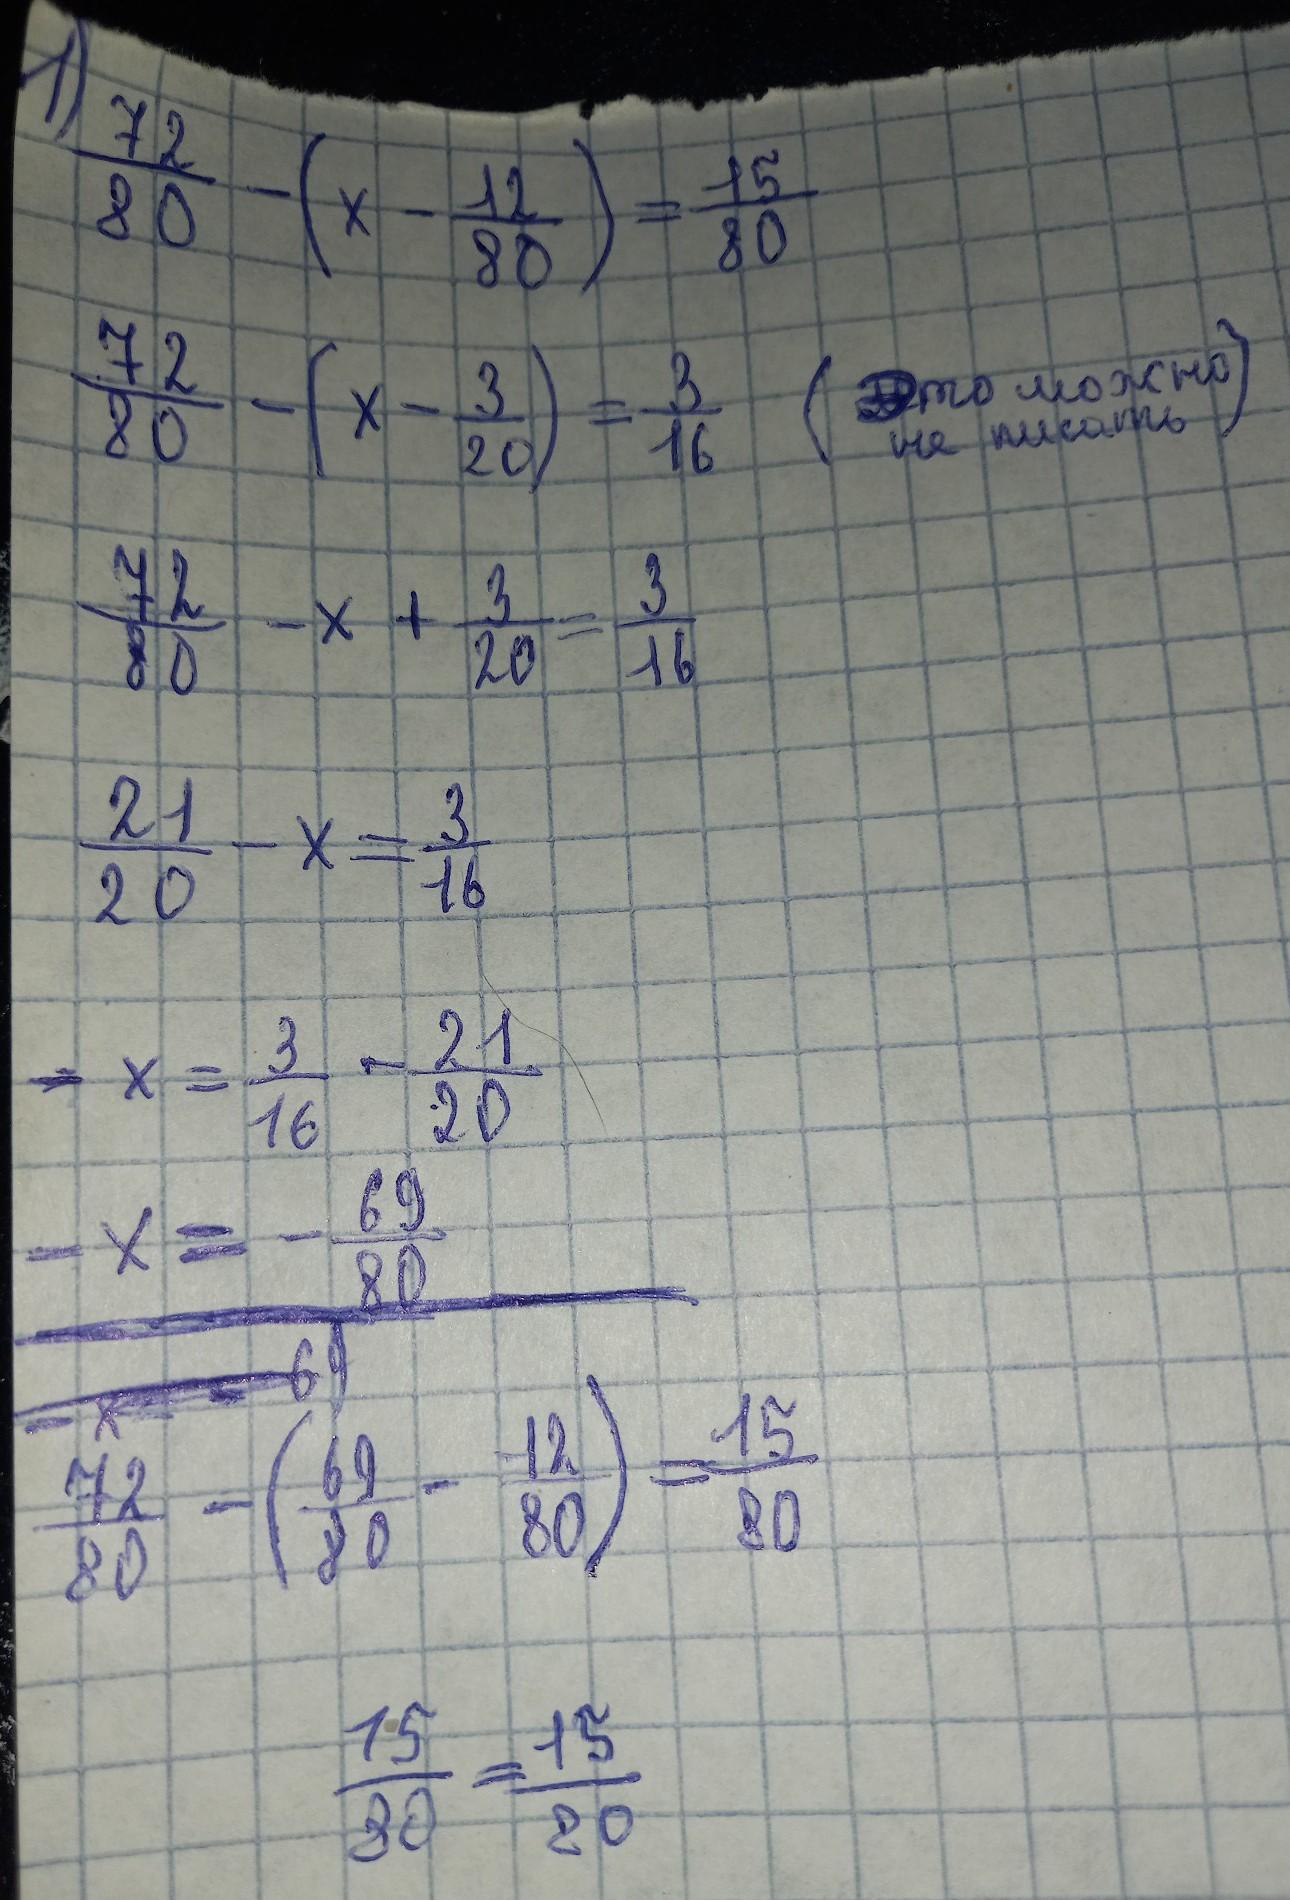 1)
72/80 - (x - 12/80) = 15/80
72/80 - (x - 3/20) = 3/16 (Это можно не писать)
72/80 - x + 3/20 = 3/16
21/20 - x = 3/16
- x = 3/16 - 21/20
- x = - 69/80
- x = - 69
72/80 - (69/80 - 12/80) = 15/80
15/80 = 15/80